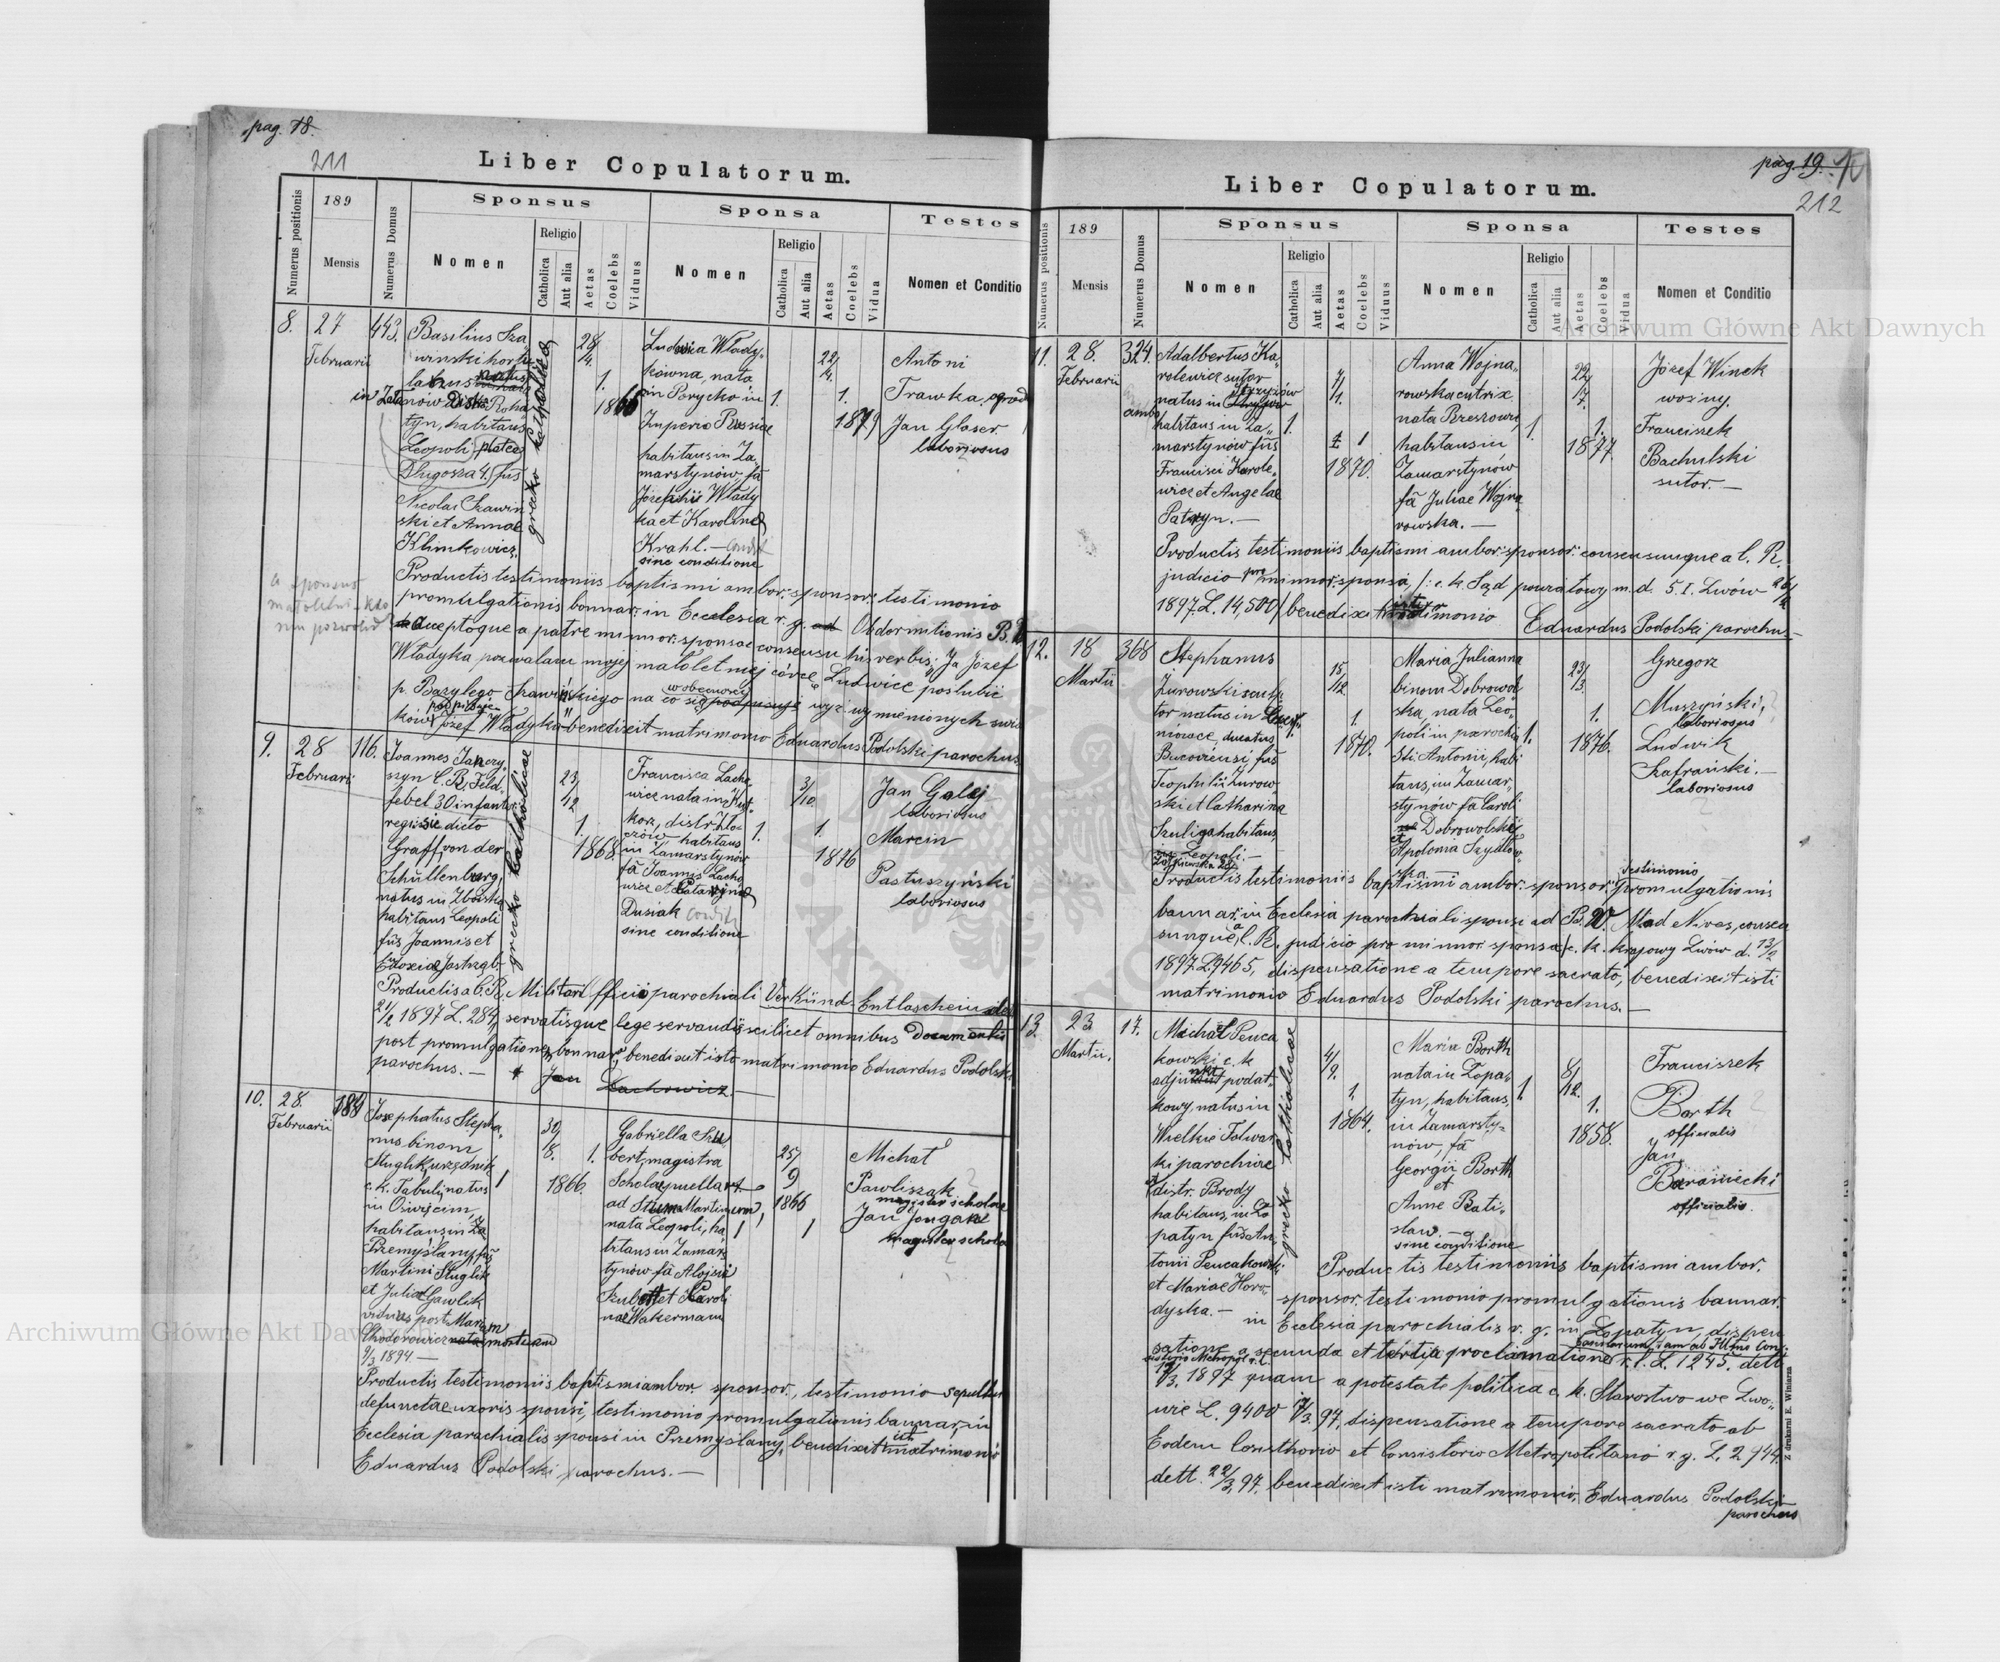 pag. 18.
211
Liber Copulatorum.
Numerus positionis
189
Mensis
Numerus Domus
Sponsus
Nomen
Religio
Catholica
Aut alia
Aetas
Coelebs
Viduus
Sponsa
Nomen
Religio
Catholica
Aut alia
Aetas
Coelebs
Vidua
Testes
Nomen et Conditio
8.
27
Februarii
443.
Basilius Sza„
winski
in Zała
nów Roha
tyn, habitans
Leopoli platea
Długosza 4, fus
Nicolai Szawin
ski et Annae
Klimkowicz.
greeko katholicae
28/4.
1.
1866
Ludwika Włady„
kówna, nata
in Porycko in
Imperio Russiae
habitans in Za„
marstynów, fa
Josephi Włady
ka et Karolinae
Krahl. —
sine conditione
1.
22/4.
1.
1879
Antoni
Trawka.
Jan Glaser
laboriosus
Productis testimoniis baptismi ambor: sponsor: testimonio
promulgationis bannar: in Ecclesia r. g. Obdormitionis B.
acceptoque a patre minnor: sponsae consensu his verbis: „Ja Józef
Władyka pozwalam mojej małoletniej córce Ludwice poślubić
p. Bazylego Szawińskiego na co się podpisuję
w obecności
wyż wymienionych świad
ków Józef Władyka" benedixit matrimonio Eduardus Podolski parochus
9.
28
Februarii
116.
Joannes Janczy
szyn C. R. Feld„
febel 30 infanter:
dicto
Graff von der
Schullenburg,
natus in Zboiska
habitans Leopoli
fus Joannis et
Jastrząb.
greeko catholicae
23/12
1.
1868.
Francisca Lacho
wicz nata in
koz, distr: Zło„
czów habitans
in Zamarstynów
fa Joannis Lacho
wicz et Catarinae
Dusiak
sine conditione
1.
3/10
1.
1876
Jan Galej
laboriosus
Marcin
Pastuszyński
laboriosus
Productis a C. R. Militari officio parochiali Verkünd- Entlaschein
21/2 1897 L. 284, servatisque lege servandis scilicet omnibus
post promulgationes bannar, benedixit isto matrimonio Eduardus Podolski
parochus. —
Jan Lachowicz. —
10.
28.
Februarii
Josephatus Stepha„
nus binom
Stuglik, urzędnik
c. k. Tabuli, natus
in Oświęcim,
habitans in Za
Przemyślany, fus
Martini Stuglik
et Julia Gawlik
viduus post Mariam
Chodorowicz mortuam
9/3 1894 —
1
30/8.
1.
1866.
Gabriella Szu
bert, magistra
Scholae puellar:
ad Stum Martinum,
nata Leopoli, ha
bitans in Zamar
tynów fa Alojsii
Szubert et Karoli
nae Wakermann
1
25/9
1866
1
Michał
Pawliszak
magister scholae
Jan
magister scholae
Productis testimoniis baptismi ambor. sponsor., testimonio sepultu
defunctae uxoris sponsi, testimonio promulgationis bannar, in
Ecclesia parachialis sponsi in Przemyślany, benedixit isti matrimonio
Eduardus Podolski parochus. —
pag. 19.
212
Liber Copulatorum.
Numerus positionis
189
Mensis
Numerus Domus
Sponsus
Nomen
Religio
Catholica
Aut alia
Aetas
Coelebs
Viduus
Sponsa
Nomen
Religio
Catholica
Aut alia
Aetas
Coelebs
Vidua
Testes
Nomen et Conditio
11.
28.
Februarii
324.
ambo
Adalbertus Ka„
rolewicz sutor
natus in
Stryżów
habitans in Za„
marstynów fus
Francisci Karole„
wicz et Angelae
Patryn. —
1.
1
1870.
Anna Wojna„
rowska
nata Brzezowie
habitans in
Zamarstynów
fa Juliae Wojna„
rowska. —
1.
22/7.
1.
1877.
Józef Winek
woźny.
Franciszek
Bachulski
sutor. —
Productis testimoniis baptismi ambor: sponsor: consensuque a C. R.
judicio pro minnor: sponsa /: c. k. Sąd powiatowy m. d. S. I. Lwów
1897 L. 14,500/ benedixi isti matrimonio Eduardus Podolski parochus —
12.
18
Martii
368
Stephanus
Żurowski
tor natus in
ducatus
Bucoviensi, fus
Teophilii Żurow„
ski et Catharina
Szuliga habitans,
in Leopoli. —
Żółkiewska 28.
1.
15/12
1.
1870.
Maria Julianna
binom Dobrowol
ska, nata Leo„
poli in parochia
Sti Antonii, habi
tans, in Zamar„
stynów fa Caroli
Dobrowolskiej
et
Apolonia Szydłow„
ska. —
1.
23/3.
1.
1876.
Grzegorz
Muszyński,
laboriosus
Ludwik
Szafrański. —
laboriosus
Productis testimoniis baptismi ambor: sponsor:
testimonio
promulgationis
bannar, in Ecclesia parochiali sponsi ad B. M. ad Nives, consen
sunque a C. R. judicio pro minnor sponsa /c. k. krajowy Lwów d. 13/2
1897. L 9465, dispensatione a tempore sacrato, benedixit isti
matrimonio Eduardus Podolski parochus. —
13.
23
Martii.
17.
Michał Peuca
kowski c. k.
adjunkt podat„
kowy, natus in
Wielkie Folwar
ki parochiae
distr. Brody
habitans, in Ło
patyn fus An
tonii Peucakowski
et Mariae Horo„
dyska. —
greeko catholicae
4/9.
1.
1864.
Maria Borth
nata in Łopa„
tyn, habitans,
in Zamarsty„
nów, fa
Georgii Borth
et
Anne Rati„
slaw. —
sine conditione
1.
8/12.
1.
1858.
Franciszek
Borth
officialis
Jan
Baraniecki
officialis.
Productis testimoniis baptismi ambor.
sponsor. testimonio promulgationis bannar.
in Ecclesia parochialis r. g. in Łopatyn, dispen
satione a secunda et tertia proclamatione r. l. L 1245. dett
17/3. 1897 quam a potestate politica c. k. Starostwo we Lwo„
wie L. 9400 17/3. 97, dispensatione a tempore sacrato ab
Eodem Consithorio et Consistorio Metropolitano r. g. L. 2444.
dett. 22/3, 97, benedixit isti matrimonio, Eduardus Podolski
parochus
Z drukarni E. Winiarza
Archiwum Główne Akt Dawnych
Archiwum Główne Akt Dawnych